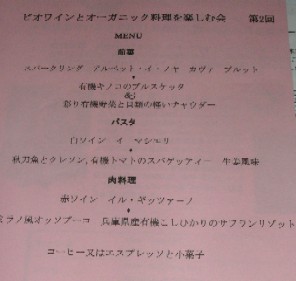 ビオワインとオーガニック料理を楽しむ会 第2回
MENU
前菜
スパークリング アルベット・イ・ノヤ カヴァ ブルット
有機キノコのブルスケッタ
&
彩り有機野菜と貝類の軽いチャウダー
パスタ
白ワイン イ マシエリ
秋刀魚とクレソン,有機トマトのスパゲッティー 生姜風味
肉料理
赤ワイン イル・ギッツァーノ
ミラノ風オッソブーコ 兵庫県産有機こしひかりのサフランリゾット
コーヒー又はエスプレッソと小菓子